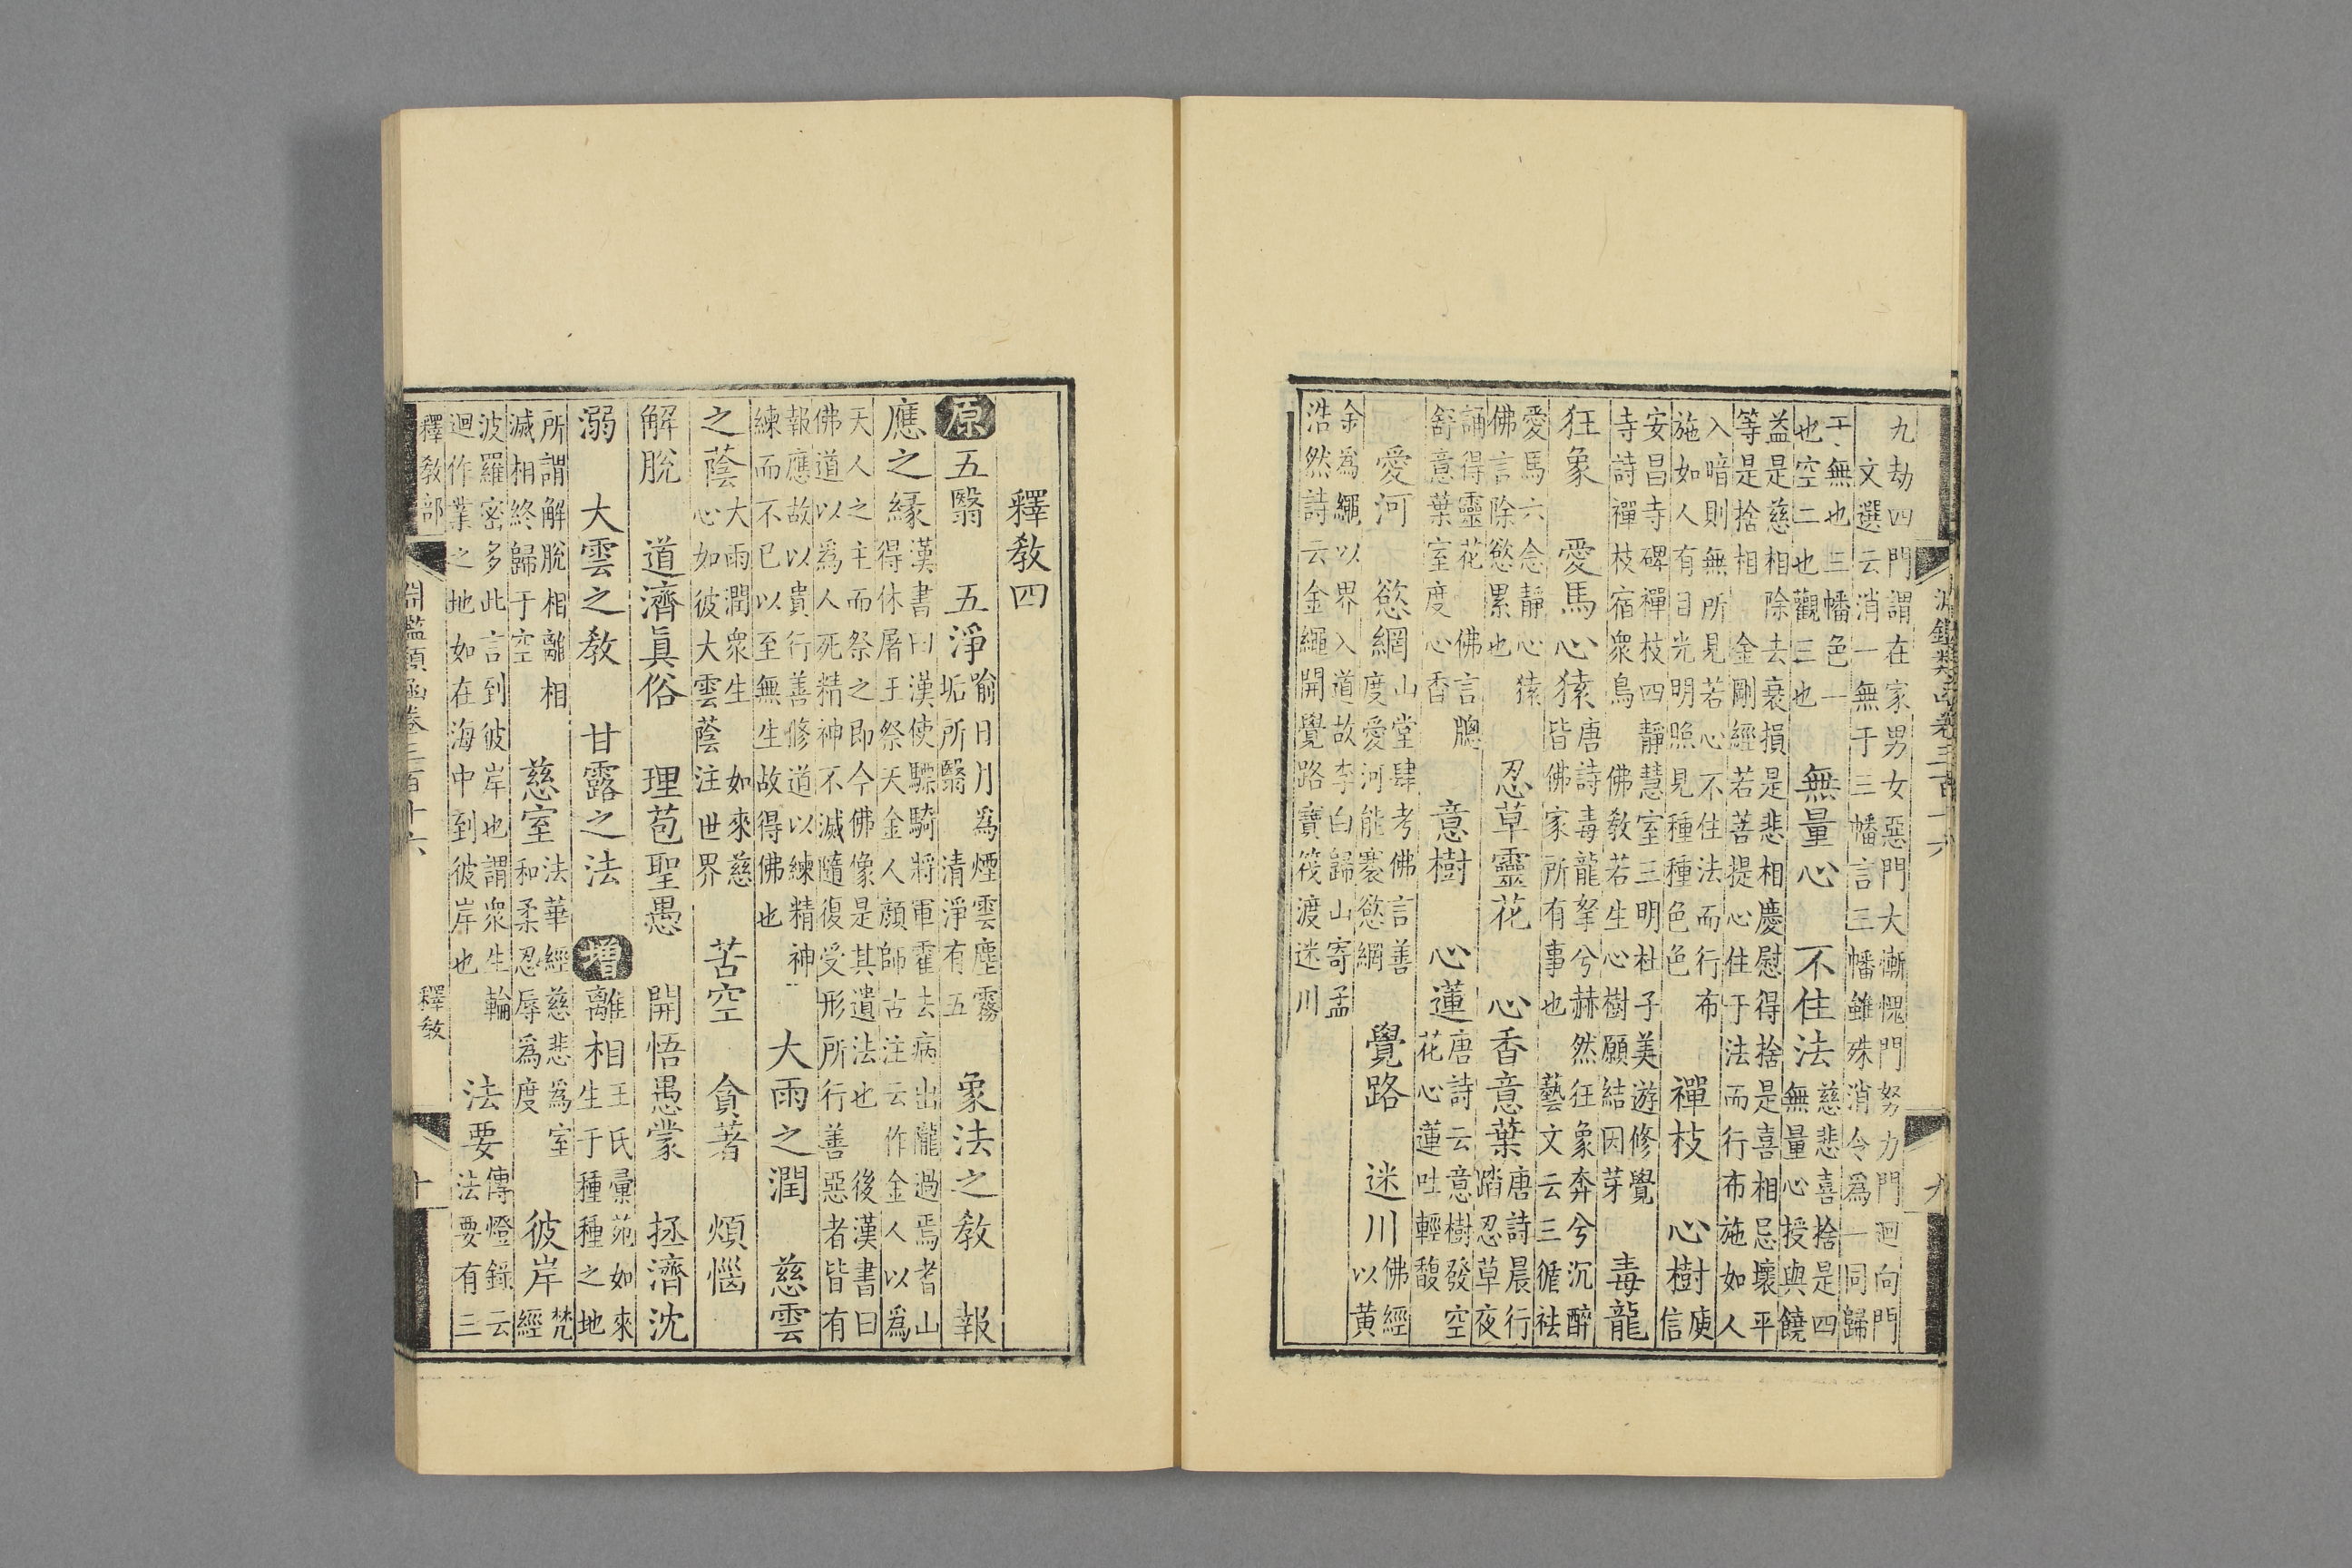 淵鑑類函卷三百十六 九
九劫四門謂在家男女惡門大慚愧門努力門迴向門
文選云消一無于三幡言三幡雖殊消令爲一同歸
于無也三幡色一也空二也觀三也 無量心 不住法 慈悲喜捨是四無量心授與饒
益是慈相除去衰損是悲相慶慰得捨是喜相忌壞平
等是捨相 金剛經若菩提心住于法而行布施如人
入暗則無所見若心不住法而行布施如人有目光明照見種種色色 禪枝 心樹 庾信
安昌寺碑禪枝四靜慧室三明杜子美遊修覺寺詩禪枝宿衆鳥 佛教若生心樹願結因芽 毒龍
狂象 愛馬心猿 唐詩毒龍拏兮赫然狂象奔兮沉醉皆佛家所有事也 藝文云三循祛
愛馬六念靜心猿佛言除慾累也 忍草靈花 心香意葉 唐詩晨行踏忍草夜
誦得靈花 佛言牕舒意葉室度心香 意樹 心蓮 唐詩云意樹發空花心蓮吐輕馥
愛河 慾網 山堂肆考佛言善度愛河能褰慾網 覺路 迷川 佛經以黃
余爲繩以界入道故李白歸山寄孟
浩然詩云金繩開覺路寶筏渡迷川
釋教四
原 五翳 五淨 喻日月爲煙雲塵霧垢所翳 清淨有五 象法之教 報
應之緣 漢書曰漢使驃騎將軍霍去病出隴過焉耆山得休屠王祭天金人顔師古注云作金人以爲
天人之主而祭之即今佛像是其遺法也 後漢書曰
佛道以爲人死精神不滅隨復受形所行善惡者皆有
報應故以貴行善修道以練精神練而不已以至無生故得佛也 大雨之潤 慈雲
之蔭 大雨潤衆生 如來慈心如彼大雲蔭注世界 苦空 貪著 煩惱
解脫 道濟眞俗 理苞聖愚 開悟愚蒙 拯濟沈
溺 大雲之教 甘露之法 增 離相 王氏彙苑如來生于種種之地
所謂解脫相離相滅相終歸于空 慈室 法華經慈悲爲室和柔忍辱爲度 彼岸 梵經
波羅密多此言到彼岸也謂衆生輪迴作業之地如在海中到彼岸也 法要 傳燈錄云法要有三
釋教部 淵鑑類函卷三百十六 釋教 十